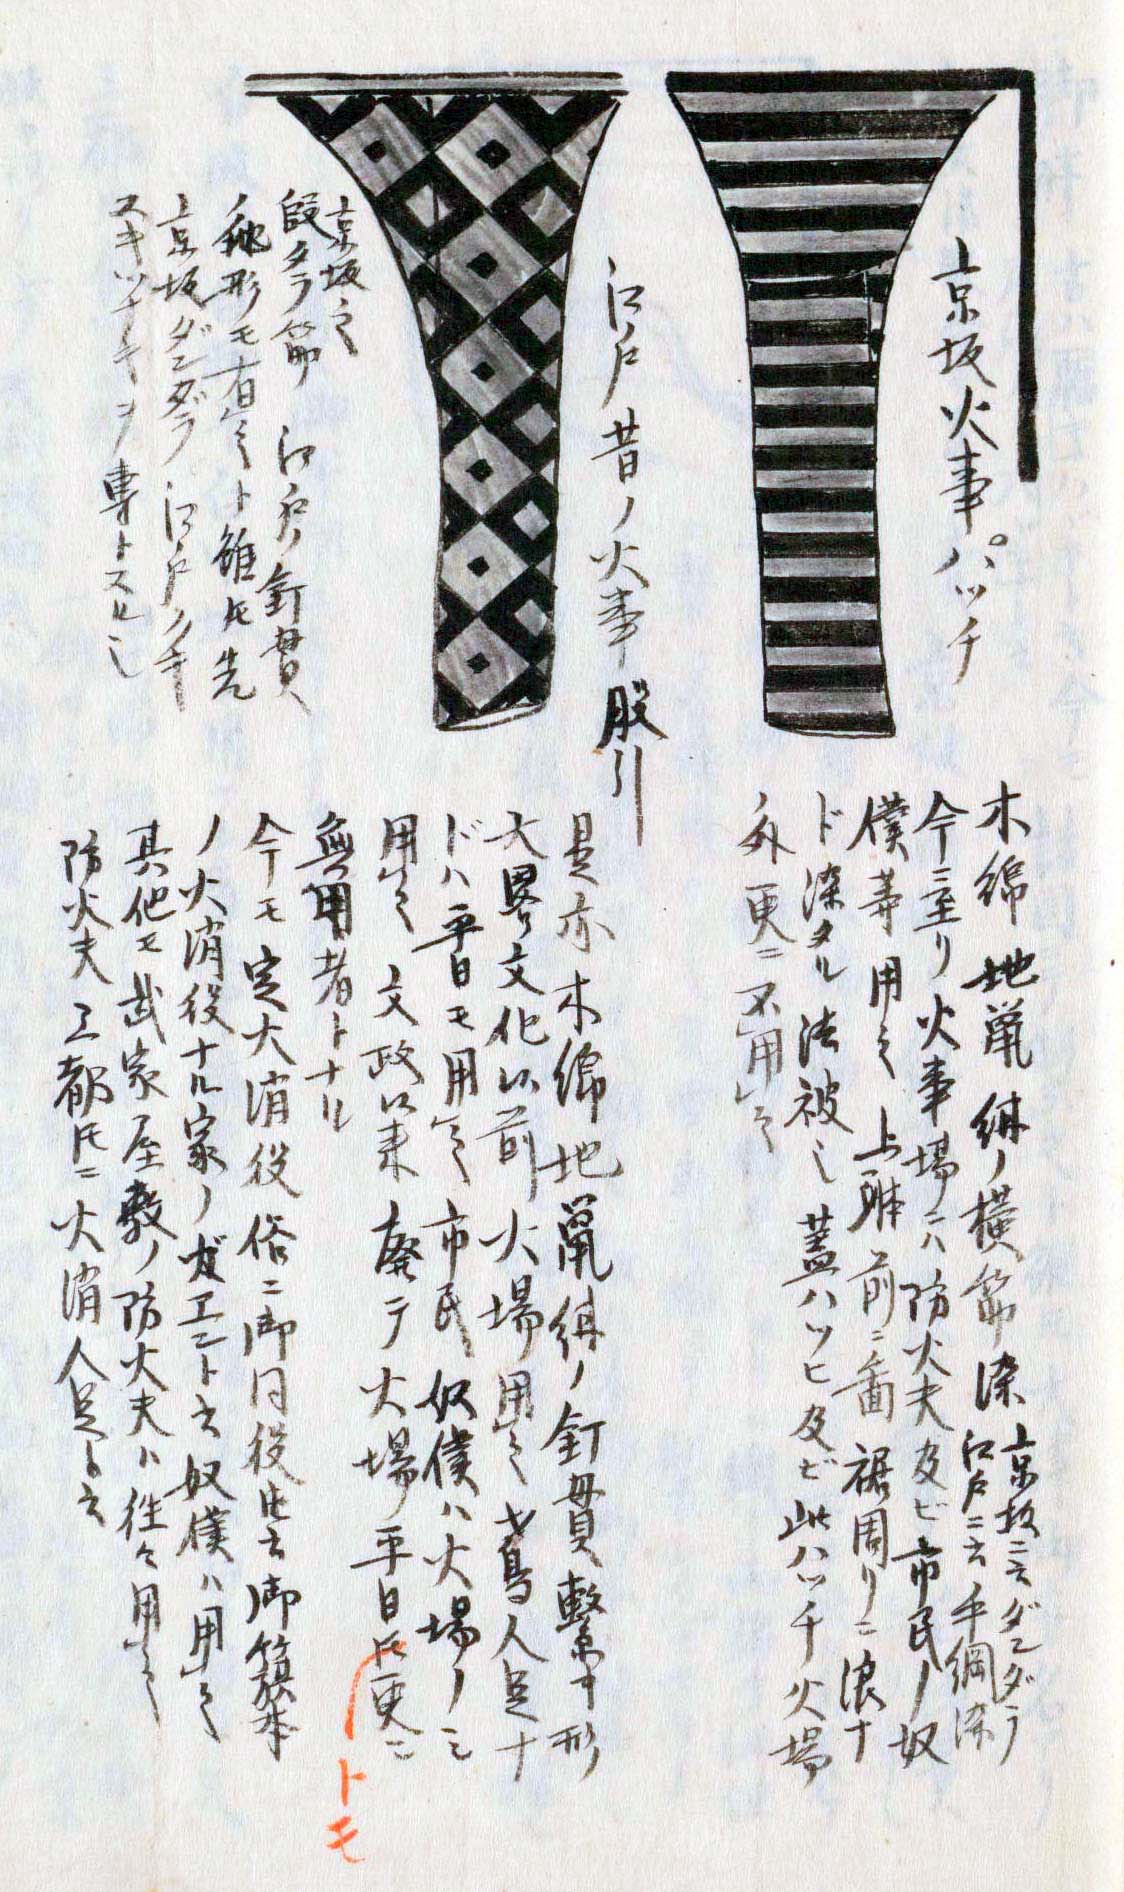 京坂火事パッチ
木綿地鼠紺ノ横筋染 京坂ニ云ダンダラ
江戸ニ云手綱染
今ニ至リ火事場ニハ防火夫及ビ市民ノ奴
僕等用之 上ニ 前ニ図 裾周リニ浪ナ
ド染タル法被也 蓋ハッピ及ビ此ハッチ火場
ノ外更ニ不用之
江戸昔ノ火事股引
是亦木綿地鼠紺ノ釘貫繋ギ形
大畧文化以前火場用之 才鳶人足ナ
ドハ平日モ用之 市民奴僕ハ火場ノミ
用之 文政以来廃テ火場平日トモ更ニ
無用者トナル
今モ定火消役俗ニ御同役ト云御籏本
ノ火消役ナル家ノガエント云奴僕ハ用之
其他モ武家屋敷ノ防火夫ハ往々用之
防火夫三都トモニ火消人足ト云
京坂之
段ダラ筋 江戸ノ釘貫
ノ形モ有之ト雖トモ先
京坂ダンダラ 江戸ノクギ
ヌキツナギヲ専トスル也
トモ